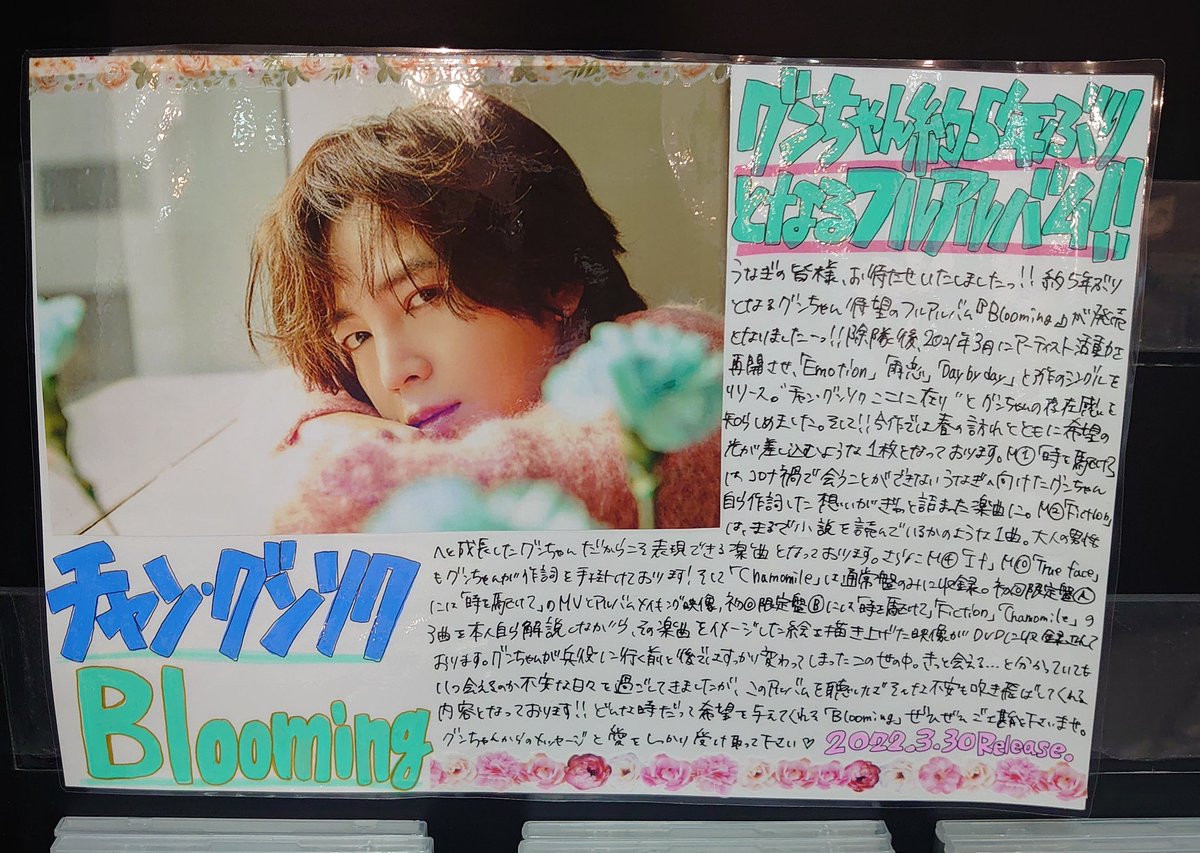 グンちゃん約5年ぶり
となるフルアルバム!!
うなぎの皆様、お待たせいたしましたっ!! 約5年ぶり
となるグンちゃん待望のフルアルバム『Blooming』が発売
となりましたーっ!! 除隊後、2021年3月にアーティスト活動を
再開させ、「Emotion」「Day by day」と
リリース。"チャン・グンソクここに在り"とグンちゃんの存在感を
知らしめました。そして!! 今作では春の訪れとともに希望の
光が差し込むような1枚となっております。M①「時を駆けて」
は、コロナ禍で会うことができないうなぎへ向けたグンちゃん
自ら作詞した想いがぎゅっと詰まった楽曲に。M②「Fiction」
は、まるで小説を読んでいるかのような1曲。大人の男性
へと成長したグンちゃんだからこそ表現できる楽曲となっております。さらにM④「If」、M⑩「True face」
もグンちゃんが作詞を手掛けております! そして「Chamomile」は通常盤のみに収録。初回限定盤Ⓐ
には「時を駆けて」のMVとアルバムメイキング映像、初回限定盤Ⓑには「時を駆けて」、「Fiction」、「Chamomile」の
3曲を本人自ら解説しながら、その楽曲をイメージした絵を描き上げた映像がDVDに収録されて
おります。グンちゃんが兵役に行く前と後ではすっかり変わってしまったこの世の中。きっと会える…と分かっていても
いつ会えるのか不安な日々を過ごしてきましたが、このアルバムを聴けばそんな不安も吹き飛ばしてくれる
内容となっております!! どんな時だって希望を与えてくれる「Blooming」ぜひぜひご堪能下さいませ。
グンちゃんからのメッセージと愛をしっかり受け取って下さい♡ 2022.3.30 Release.
チャン・グンソク
Blooming